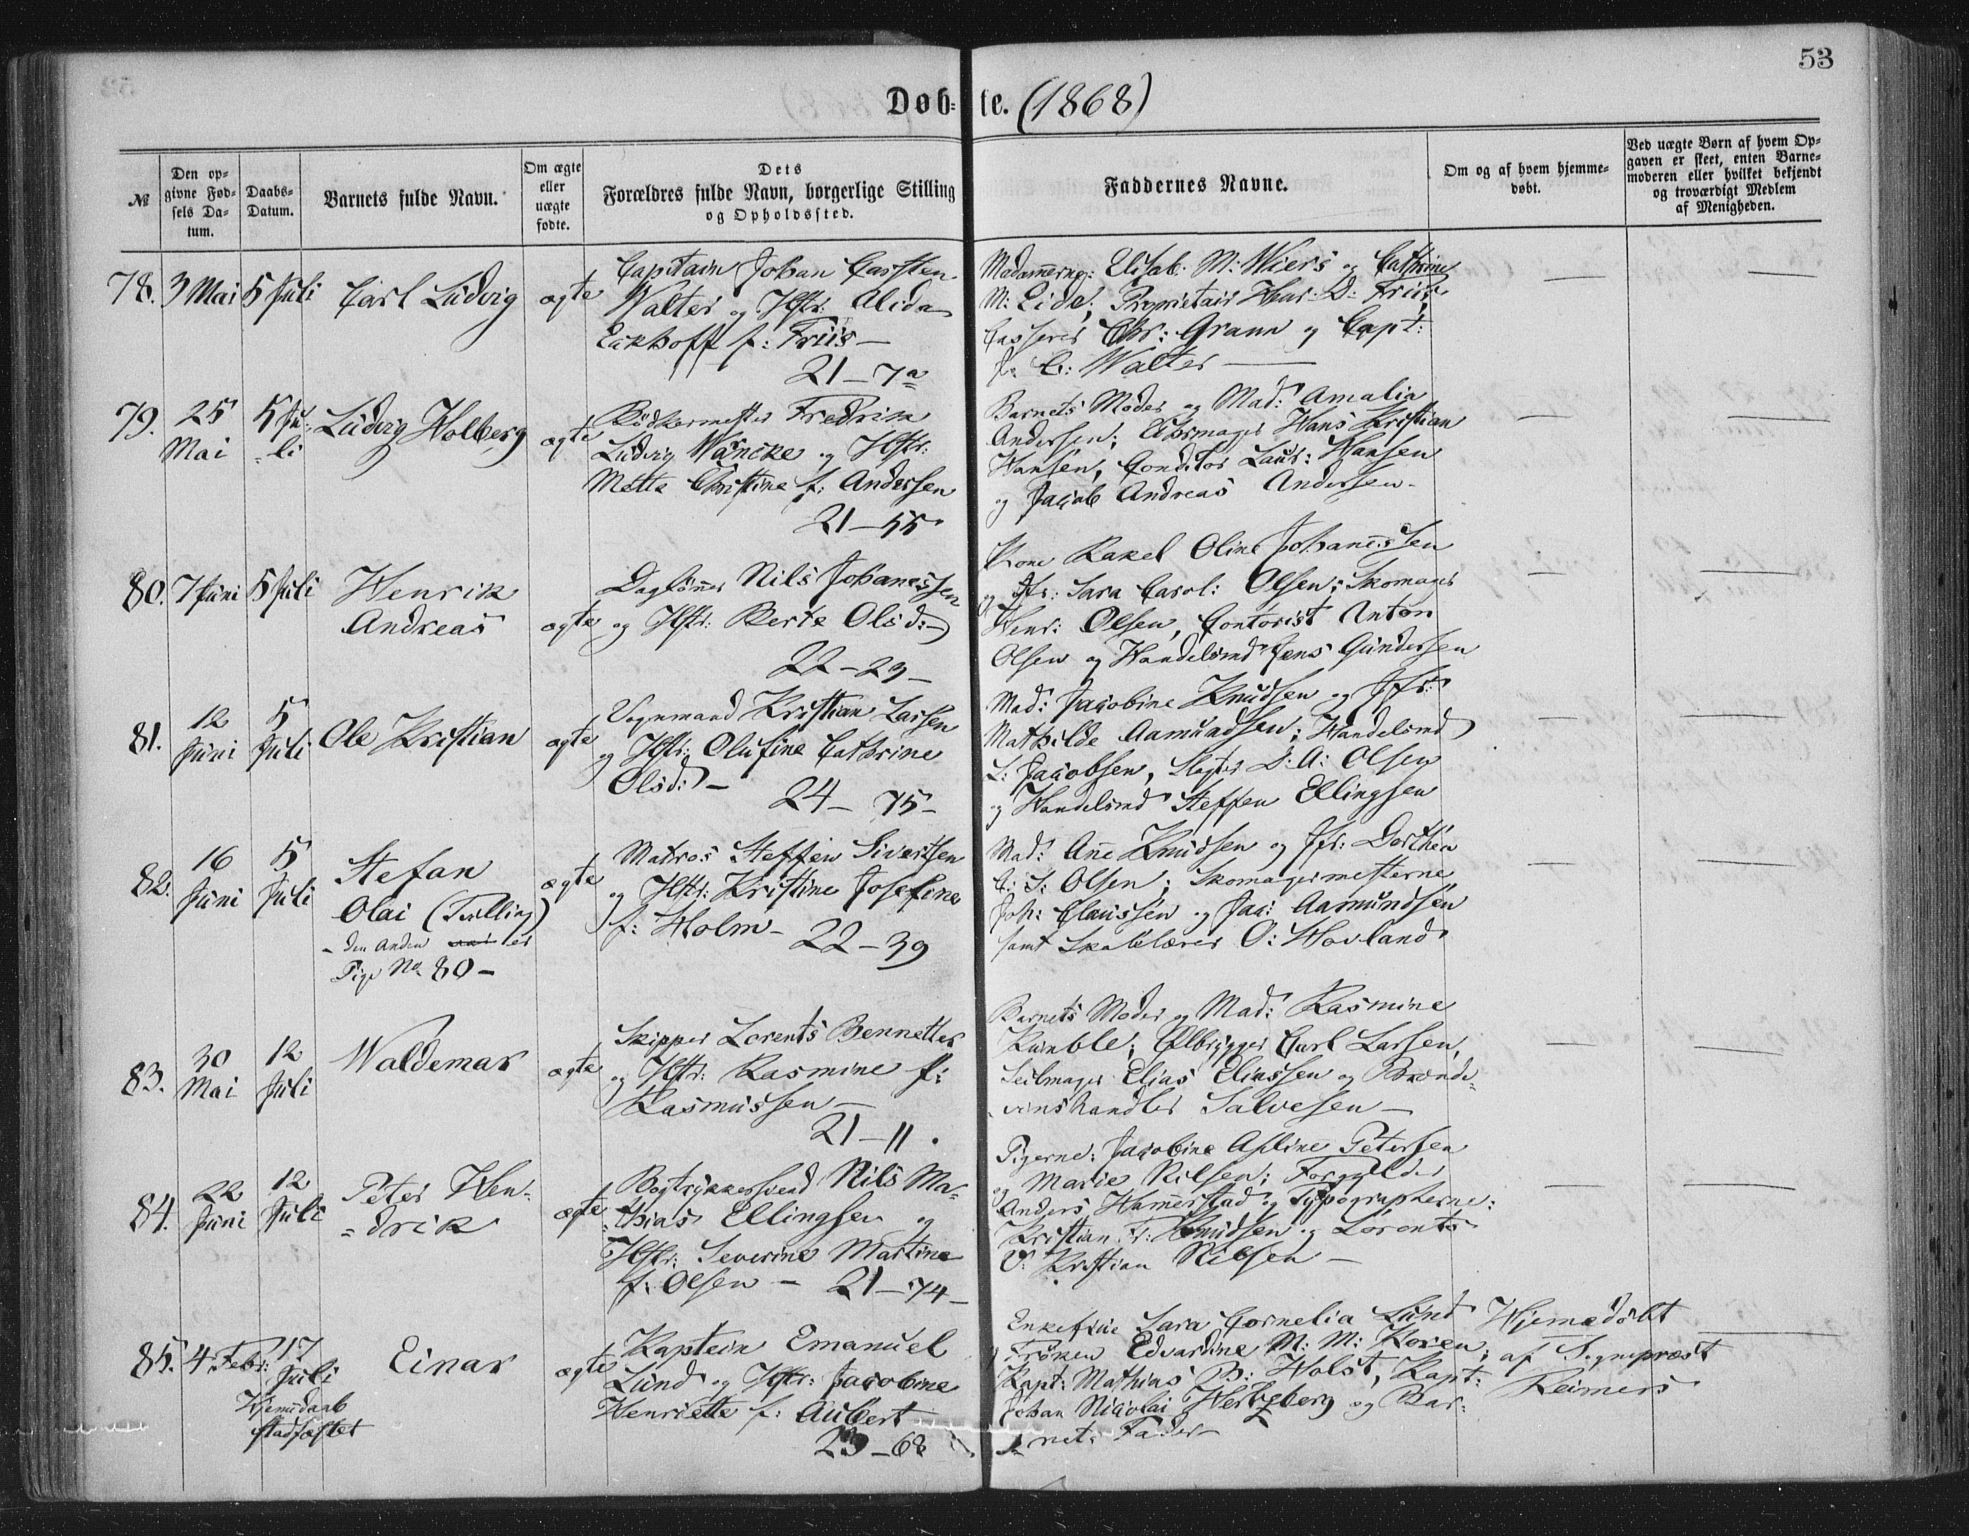 53
Døb= te. (1868)
№
Den op-
givne Fød-
sels Da-
tum.
Daabs-
Datum.
Barnets fulde Navn.
Om ægte
eller
uægte
fødte.
Dets
Forældres fulde Navn, borgerlige Stilling
og Opholdssted.
Faddernes Navne.
Om og af hvem hjemme-
døbt.
Ved uægte Børn af hvem Op-
gaven er skeet, enten Barne-
moderen eller hvilket bekjendt
og troværdigt Medlem
af Menigheden.
78. 3 Mai 5 Juli Carl Ludvig ægte
Capitain Johan Carsten
Walter og Hstr: Alida
Eckhoff f: Friis —
21—7a
Madamerne: Elisab. M: Wiers og Cathrine
M: Eide; Proprietair Har: D: Friis,
Casserer Chr: Grann og Capt:
J: C: Walter —
79. 25 Mai 5 Juli Ludvig Holberg ægte
Bødkermester Fredrik
Ludvig Wäncke og Hstr:
Mette Christine f: Andersen
21—55
Barnets Moder og Mad: Amalia
Andersen; Uhrmager Hans Kristian
Hansen, Conditor Laur: Hansen
og Jacob Andreas Andersen—
80. 7 Juni 5 Juli Henrik
Andreas ægte
Dagløner Nils Johanessen
og Hstr: Berte Olsd:—
22—29—
Kone Rakel Oline Johanessen
og Jfr: Sara Carol: Olsen; Skomager
Henr: Olsen, Contorist Anton
Olsen og Handelsmd Jens Gundersen
81. 12 Juni 5 Juli Ole Kristian ægte
Vognmand Kristian Larsen
og Hstr: Olufine Cathrine
Olsd:—
24—75—
Mad: Jacobine Knudsen og Jfr:
Mathilde Aamundsen; Handelsmd
L: Jacobsen, Slagter D: A: Olsen
og Handelsmd Steffen Ellingsen
82. 16 Juni 5 Juli Stefan
Olai (Tvilling)
- den Anden er
Pige No 80— ægte
Matros Steffen Sivertsen
og Hstr: Kristine Josefine
f: Holm—
22—39
Mad: Ane Knudsen og Jfr: Dorthea
C: S: Olsen; Skomagermesterne
Joh: Claussen og Jac: Aamundsen
samt Skolelærer O: Hovland
83. 30 Mai 12 Juli Waldemar ægte
Skipper Lorents Bennetter
og Hstr: Rasmine f:
Rasmussen —
21—11.
Barnets Moder og Mad: Rasmine
Kumble; Ølbrygger Carl Larsen,
Seilmager Elias Eliassen og Brænde-
vinshandler Salvesen—
84. 22 Juni 12 Juli Peter Hen-
-drik ægte
Bogtrykkersvend Nils Ma-
thias Ellingsen og
Hstr: Severine Martine
f: Olsen— 21—74—
Pigerne: Jacobine Asline Petersen
og Marie Nilsen; Forgylder
Anders Hamerstad og Typographerne:
Kristian Fr: Knudsen og Lorents
O: Kristian Nilsen—
85. 4 Febr: 17 Juli Einar ægte
Hjemedaab
stadfæstet
Kaptein Emanuel
Lund og Hstr: Jacobine
Henriette f: Aubert
23—68
Enkefrue Sara Cornelia Lund
Frøken Edvardine M: M: Koren;
Kapt: Mathias B: Holst, Kapt:
Johan Nicolai Hertzberg og Bar-
nets Fader—
Hjemedøbt
af Sognepræst
Reimers